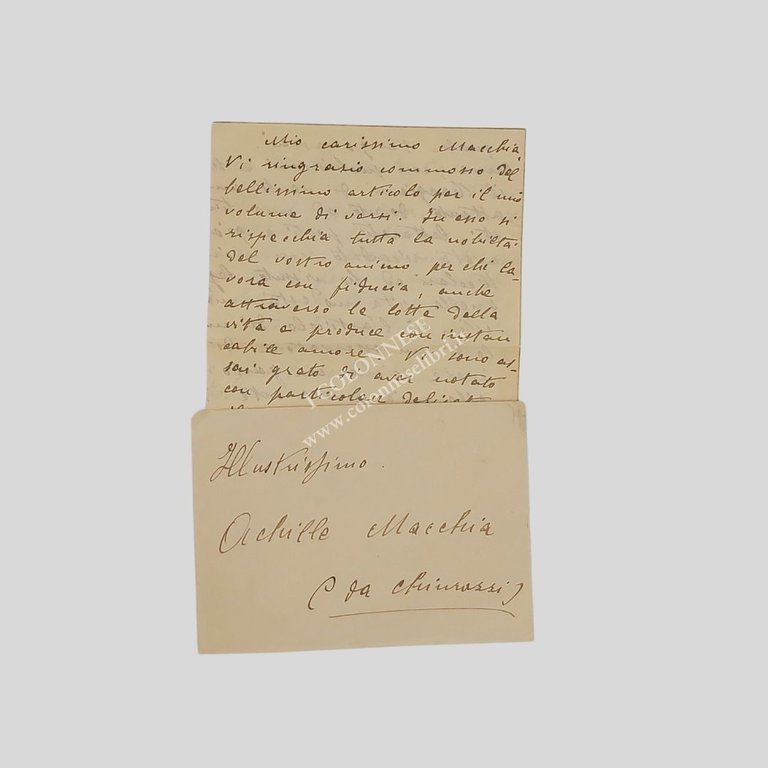 Mio carissimo Macchia,
Vi ringrazio commosso, del
bellissimo articolo per il mio
volume di versi. In esso si
rispecchia tutta la nobiltà
del vostro animo, per chi la-
vora con fiducia, anche
attraverso le lotte della
vita e produce con instan
cabile amore. Vi sono as-
sai grato di aver notato
con particolare
Illustrissimo.
Achille Macchia
(da Chiurazzi)
COLONNESE
www.colonneselibri.it